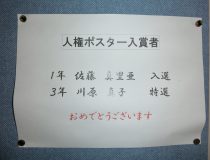 人権ポスター入賞者
1年 佐藤 真里亜 入選
3年 川原 直子 特選
おめでとうございます